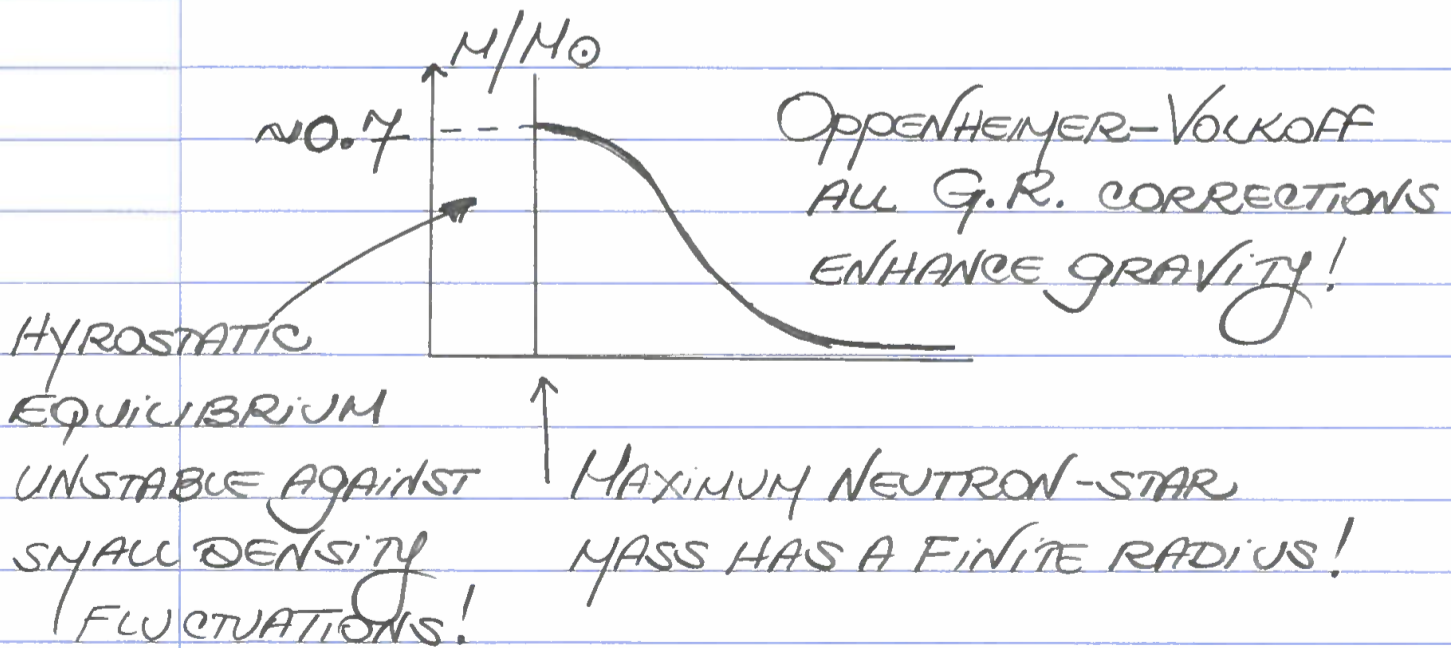 M/M⊙
~0.7
OPPENHEIMER-VOLKOFF
ALL G.R. CORRECTIONS
ENHANCE GRAVITY!
HYROSTATIC
EQUILIBRIUM
UNSTABLE AGAINST
SMALL DENSITY
FLUCTUATIONS!
MAXIMUM NEUTRON-STAR
MASS HAS A FINITE RADIUS!